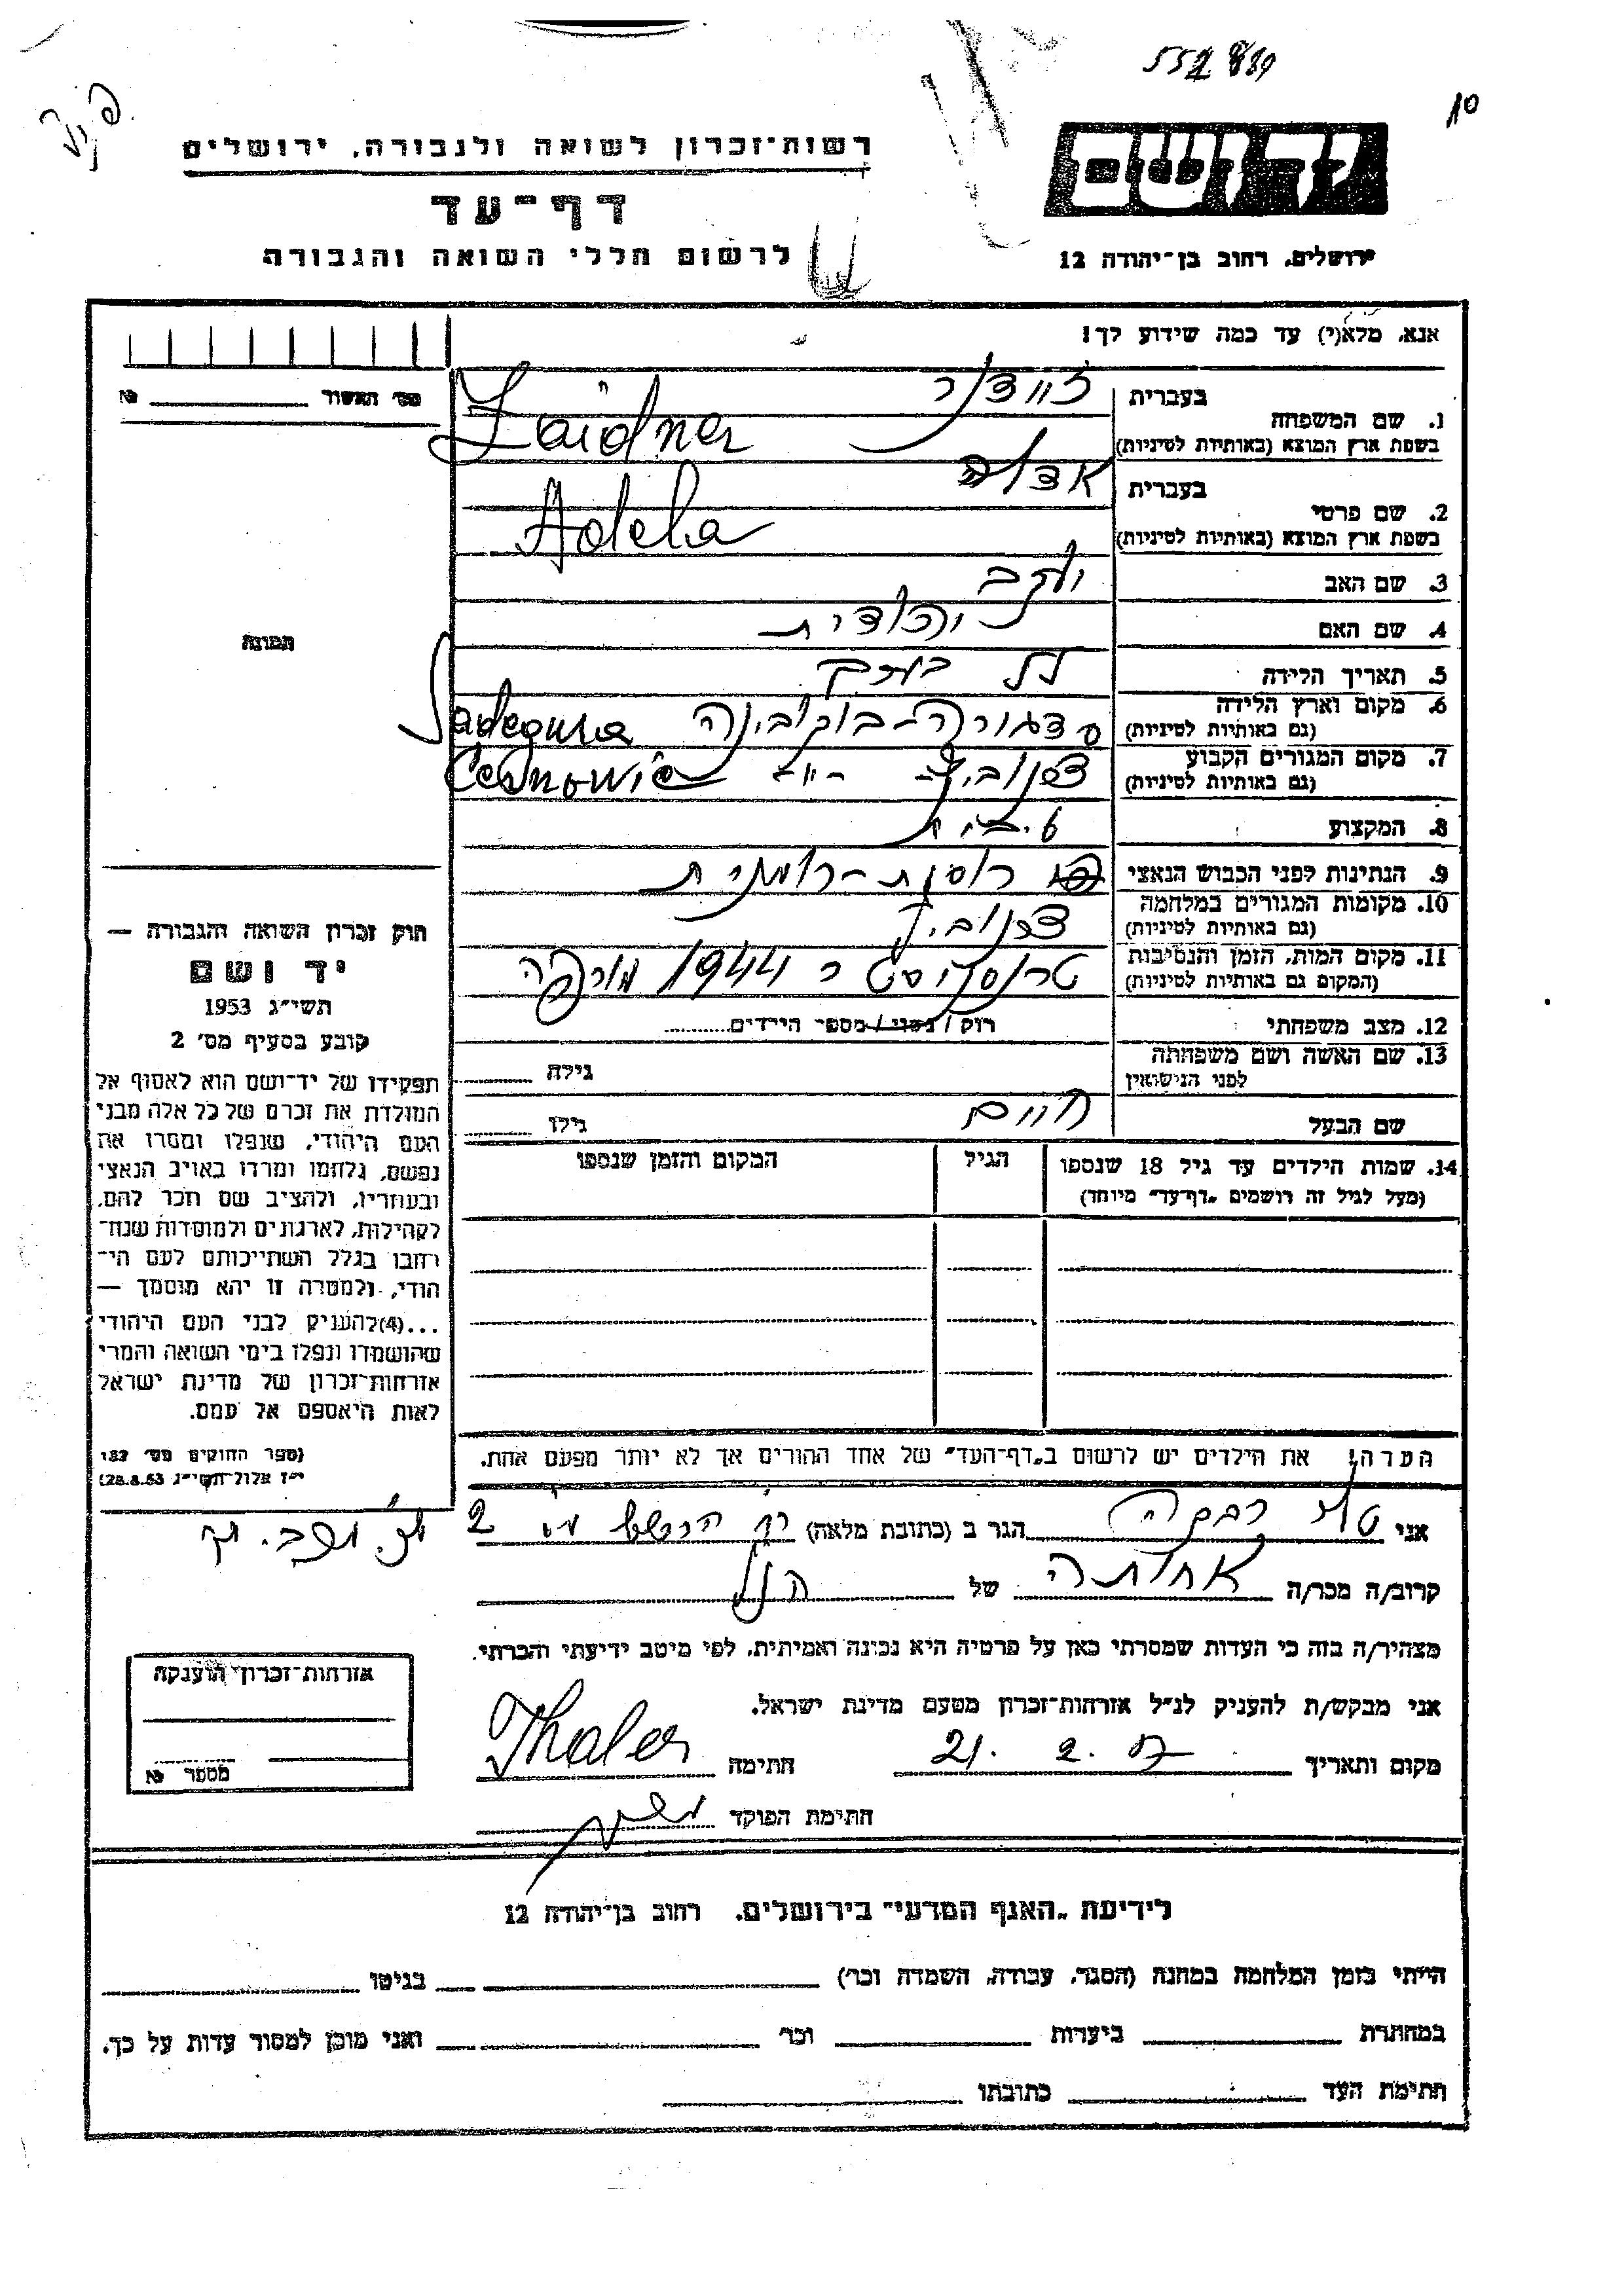 552839
10
רשות־זכרון לשואה ולגבורה, ירושלים
דף־עד
לרשום חללי השואה והגבורה
יד ושם
ירושלים, רחוב בן־יהודה 12
אנא, מלא(י) עד כמה שידוע לך!
מס׳ האשור №
1. שם המשפחה
בעברית
בשפת ארץ המוצא (באותיות לטיניות)
Zaidner
2. שם פרטי
בעברית
בשפת ארץ המוצא (באותיות לטיניות)
Adela
3. שם האב יעקב
4. שם האם יהודית
5. תאריך הלידה
6. מקום וארץ הלידה
(גם באותיות לטיניות)
סדגורה - בוקובינה Sadegura
7. מקום המגורים הקבוע
(גם באותיות לטיניות)
8. המקצוע
9. הנתינות לפני הכבוש הנאצי רומנית
10. מקומות המגורים במלחמה
(גם באותיות לטיניות)
11. מקום המות, הזמן והנסיבות
(המקום גם באותיות לטיניות)
1944
12. מצב משפחתי רוק / נשוי / מספר הילדים
13. שם האשה ושם משפחתה
לפני הנישואין
גילה
שם הבעל חיים גילו
14. שמות הילדים עד גיל 18 שנספו
(מעל לגיל זה רושמים „דף־עד״ מיוחד)
הגיל
המקום והזמן שנספו
הערה! את הילדים יש לרשום ב„דף־העד״ של אחד ההורים אך לא יותר מפעם אחת.
תמונה
חוק זכרון השואה והגבורה —
יד ושם
תשי״ג 1953
קובע בסעיף מס׳ 2
תפקידו של יד־ושם הוא לאסוף אל
המולדת את זכרם של כל אלה מבני
העם היהודי, שנפלו ומסרו את
נפשם, נלחמו ומרדו באויב הנאצי
ובעוזריו, ולהציב שם וזכר להם,
לקהילות, לארגונים ולמוסדות שנח־
רבו בגלל השתייכותם לעם הי־
הודי, ולמטרה זו יהא מוסמך —
...(4) להעניק לבני העם היהודי
שהושמדו ונפלו בימי השואה והמרי
אזרחות־זכרון של מדינת ישראל
לאות היאספם אל עמם.
(ספר החוקים מס׳ 132,
י״ז אלול תשי״ג 28.8.53)
אני רבקה הגר ב (כתובת מלאה) 2
קרוב/ה מכר/ה אחותה של הנ״ל
מצהיר/ה בזה כי העדות שמסרתי כאן על פרטיה היא נכונה ואמיתית, לפי מיטב ידיעתי והכרתי.
אני מבקש/ת להעניק לנ״ל אזרחות־זכרון מטעם מדינת ישראל.
מקום ותאריך 21. 2. 57 חתימה Thaler
חתימת הפוקד
אזרחות־זכרון הוענקה
מספר №
לידיעת „האגף המדעי״ בירושלים, רחוב בן־יהודה 12
הייתי בזמן המלחמה במחנה (הסגר, עבודה, השמדה וכו׳) בגיטו
במחתרת ביערות וכו׳ ואני מוכן למסור עדות על כך.
חתימת העד כתובתו